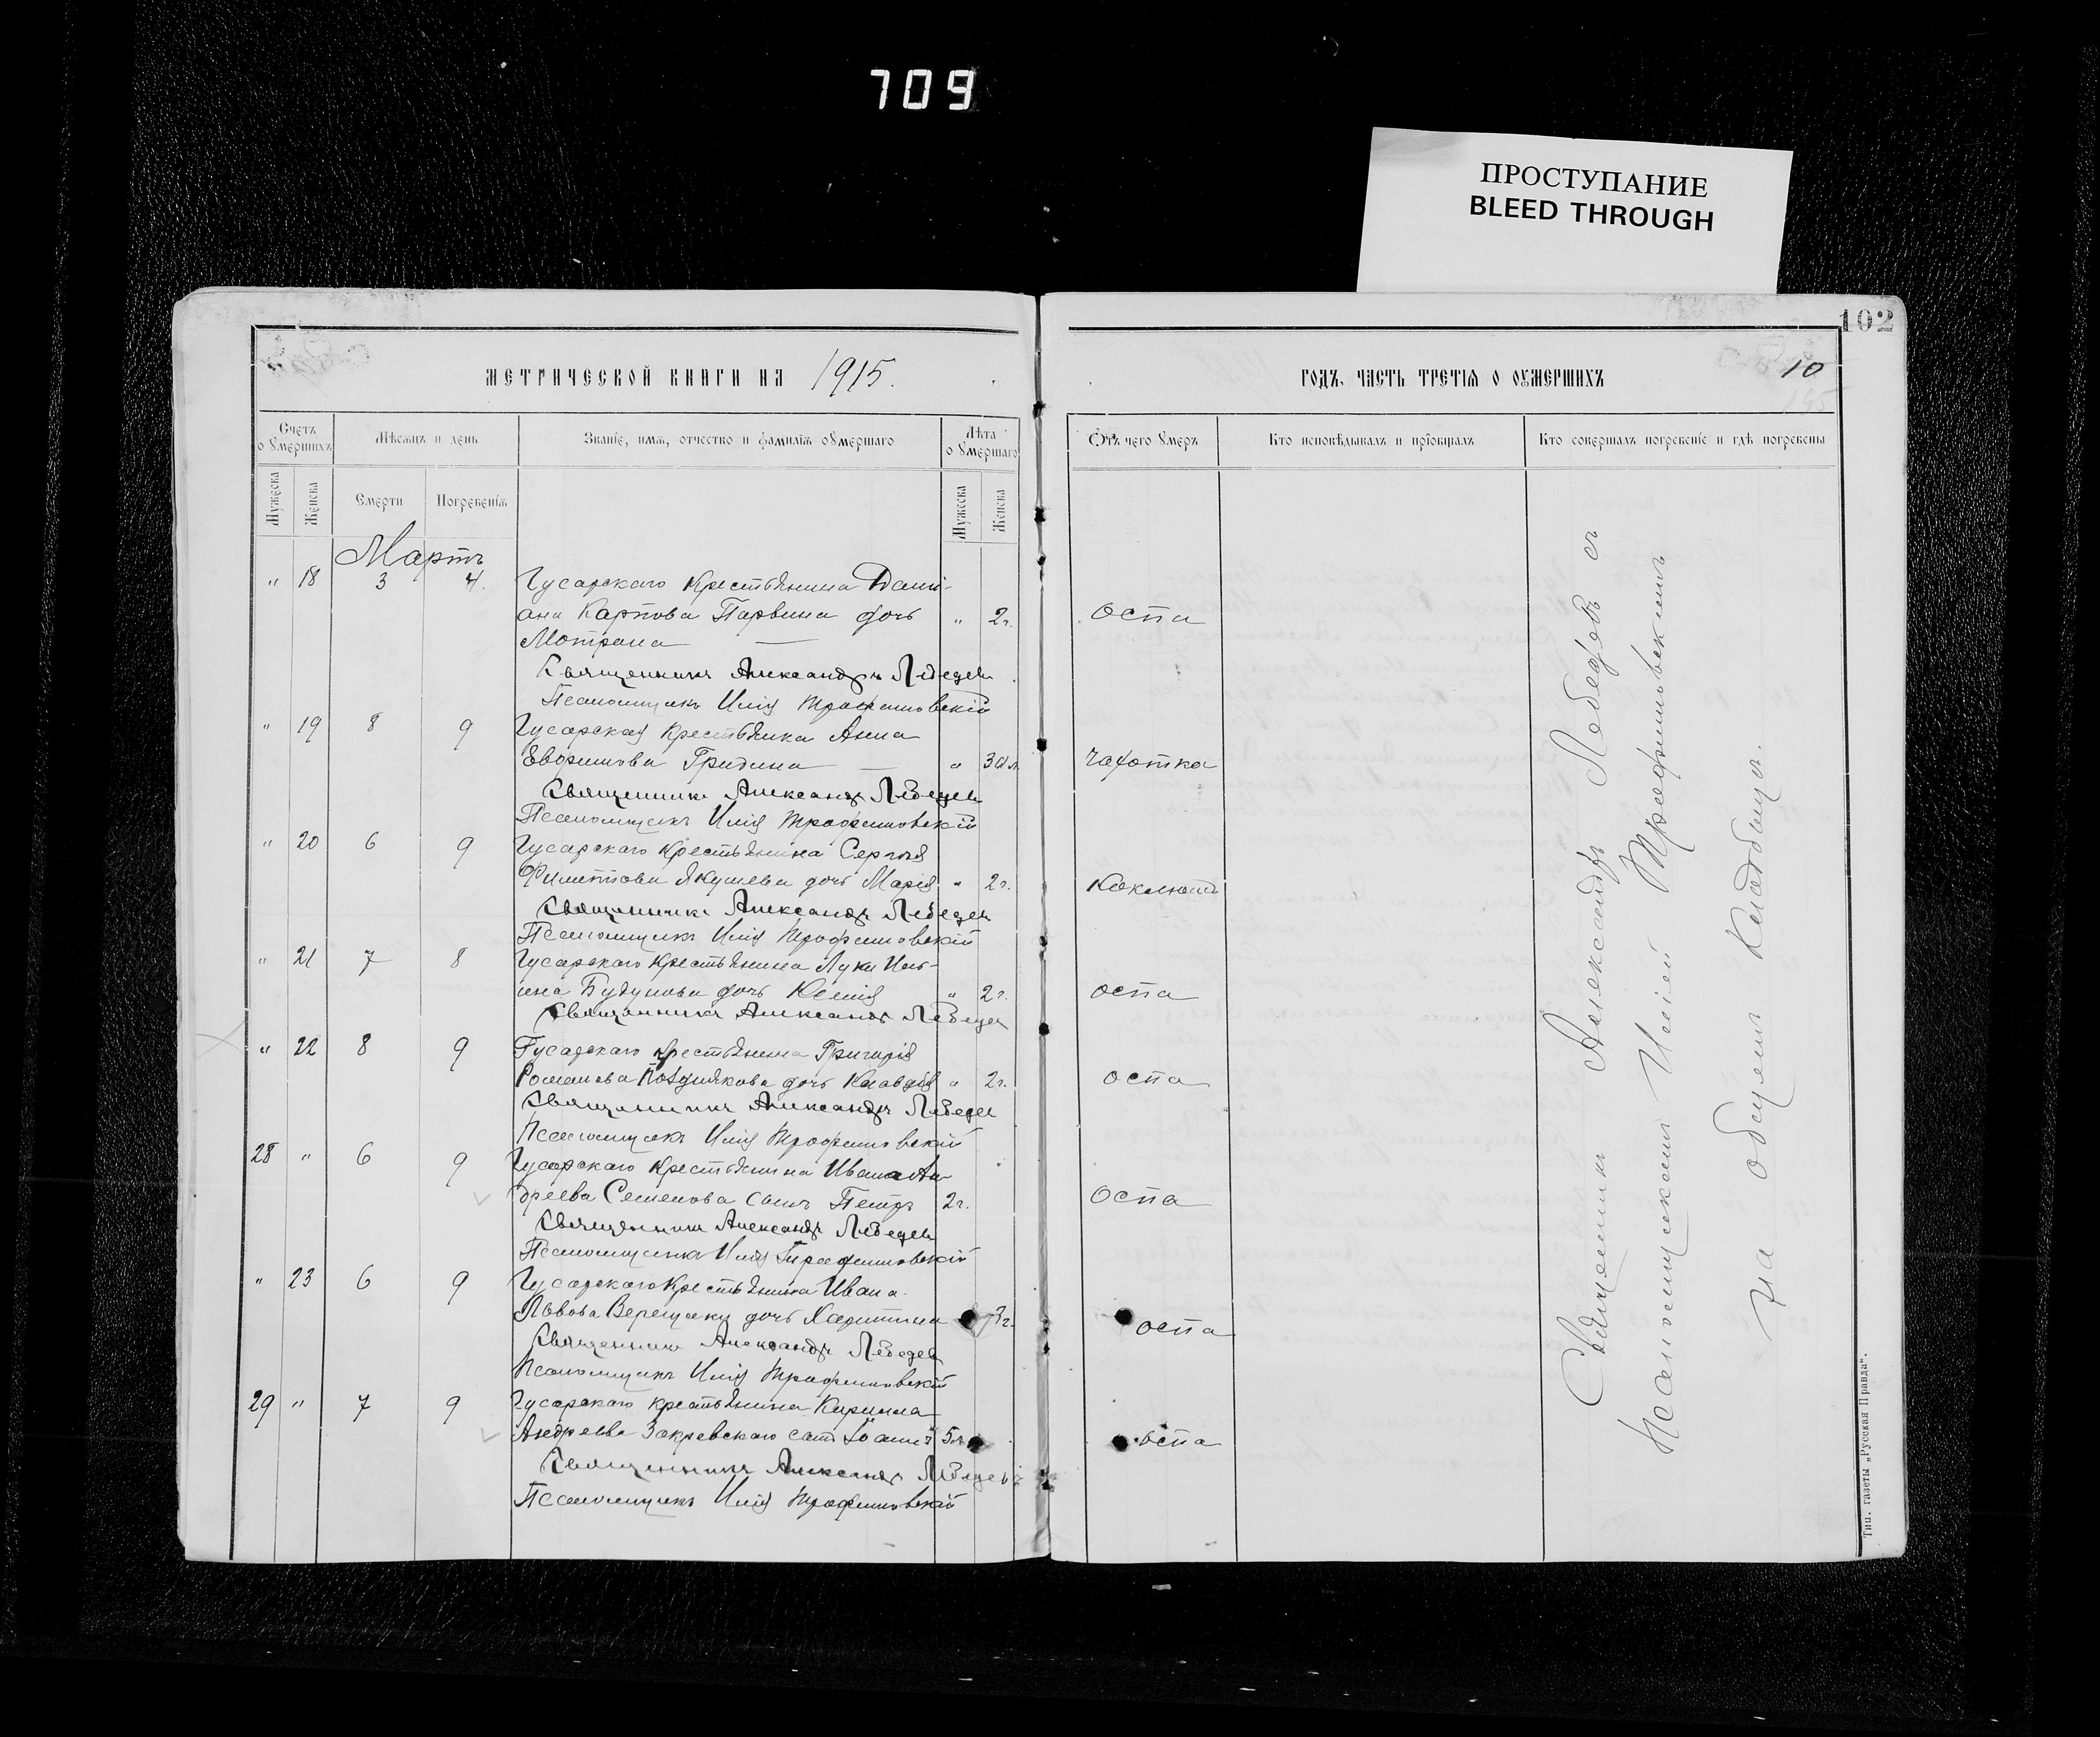 709
ПРОСТУПАНИЕ
BLEED THROUGH
102
МЕТРИЧЕСКОЙ КНИГИ НА 1915.
ГОДЪ, ЧАСТЬ ТРЕТІЯ О ОУМЕРШИХЪ
10
Счетъ оумершихъ
Мѣсяцъ и день
Званіе, имя, отчество и фамилія оумершаго
Лѣта оумершаго
Отъ чего умеръ
Кто исповѣдывалъ и пріобщалъ
Кто совершалъ погребеніе и гдѣ погребены
Мужеска
Женска
Смерти
Погребенія
Мужеска
Женска
Мартъ
" 18 3 4. Гусарскаго крестьянина Деми-
ана Карпова Парвина дочь " 2 г. оспа
Мотрона
Священникъ Александръ Лебедевъ
Псаломщикъ Илія Трофимовскій
" 19 8 9 Гусарская крестьянка Анна
Гридина " чахотка
Священникъ Александръ Лебедевъ
Псаломщикъ Илія Трофимовскій
" 20 6 9 Гусарскаго крестьянина Сергѣя
Филиппова Якушева дочь Марія " 2 г. коклюшъ
Священникъ Александръ Лебедевъ
Псаломщикъ Илія Трофимовскій
" 21 7 8 Гусарскаго крестьянина Луки Иль-
ина дочь " 2 г. оспа
Священникъ Александръ Лебедевъ
" 22 8 9 Гусарскаго крестьянина Григорія
Романова Позднякова дочь Клавдія " 2 г. оспа
Священникъ Александръ Лебедевъ
Псаломщикъ Илія Трофимовскій
28 " 6 9 Гусарскаго крестьянина Ивана Ан-
дреева Семенова сынъ Петръ 2 г. оспа
Священникъ Александръ Лебедевъ
Псаломщикъ Илія Трофимовскій
" 23 6 9 Гусарскаго крестьянина Ивана
Львова дочь Харитина оспа
Священникъ Александръ Лебедевъ
Псаломщикъ Илія Трофимовскій
29 " 7 9 Гусарскаго крестьянина Кирилла
Андреева Закревскаго сынъ Іоаннъ 5 л. оспа
Священникъ Александръ Лебедевъ
Псаломщикъ Илія Трофимовскій
Священникъ Александръ Лебедевъ съ
Псаломщикомъ Иліей Трофимовскимъ
на общемъ кладбищѣ.
Тип. газеты „Русская Правда“.